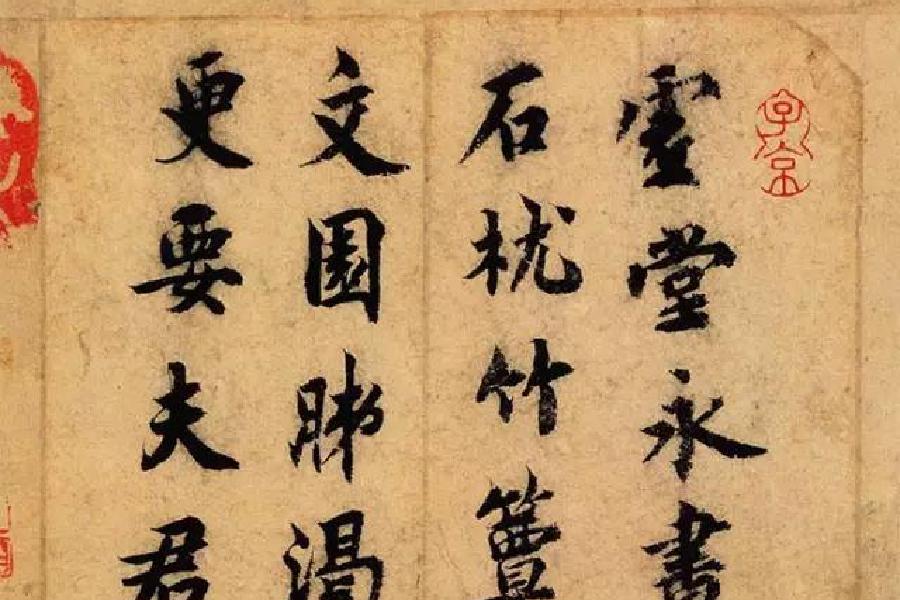 子京
虛堂永晝
石枕竹簟
文園肺渴
更要夫君